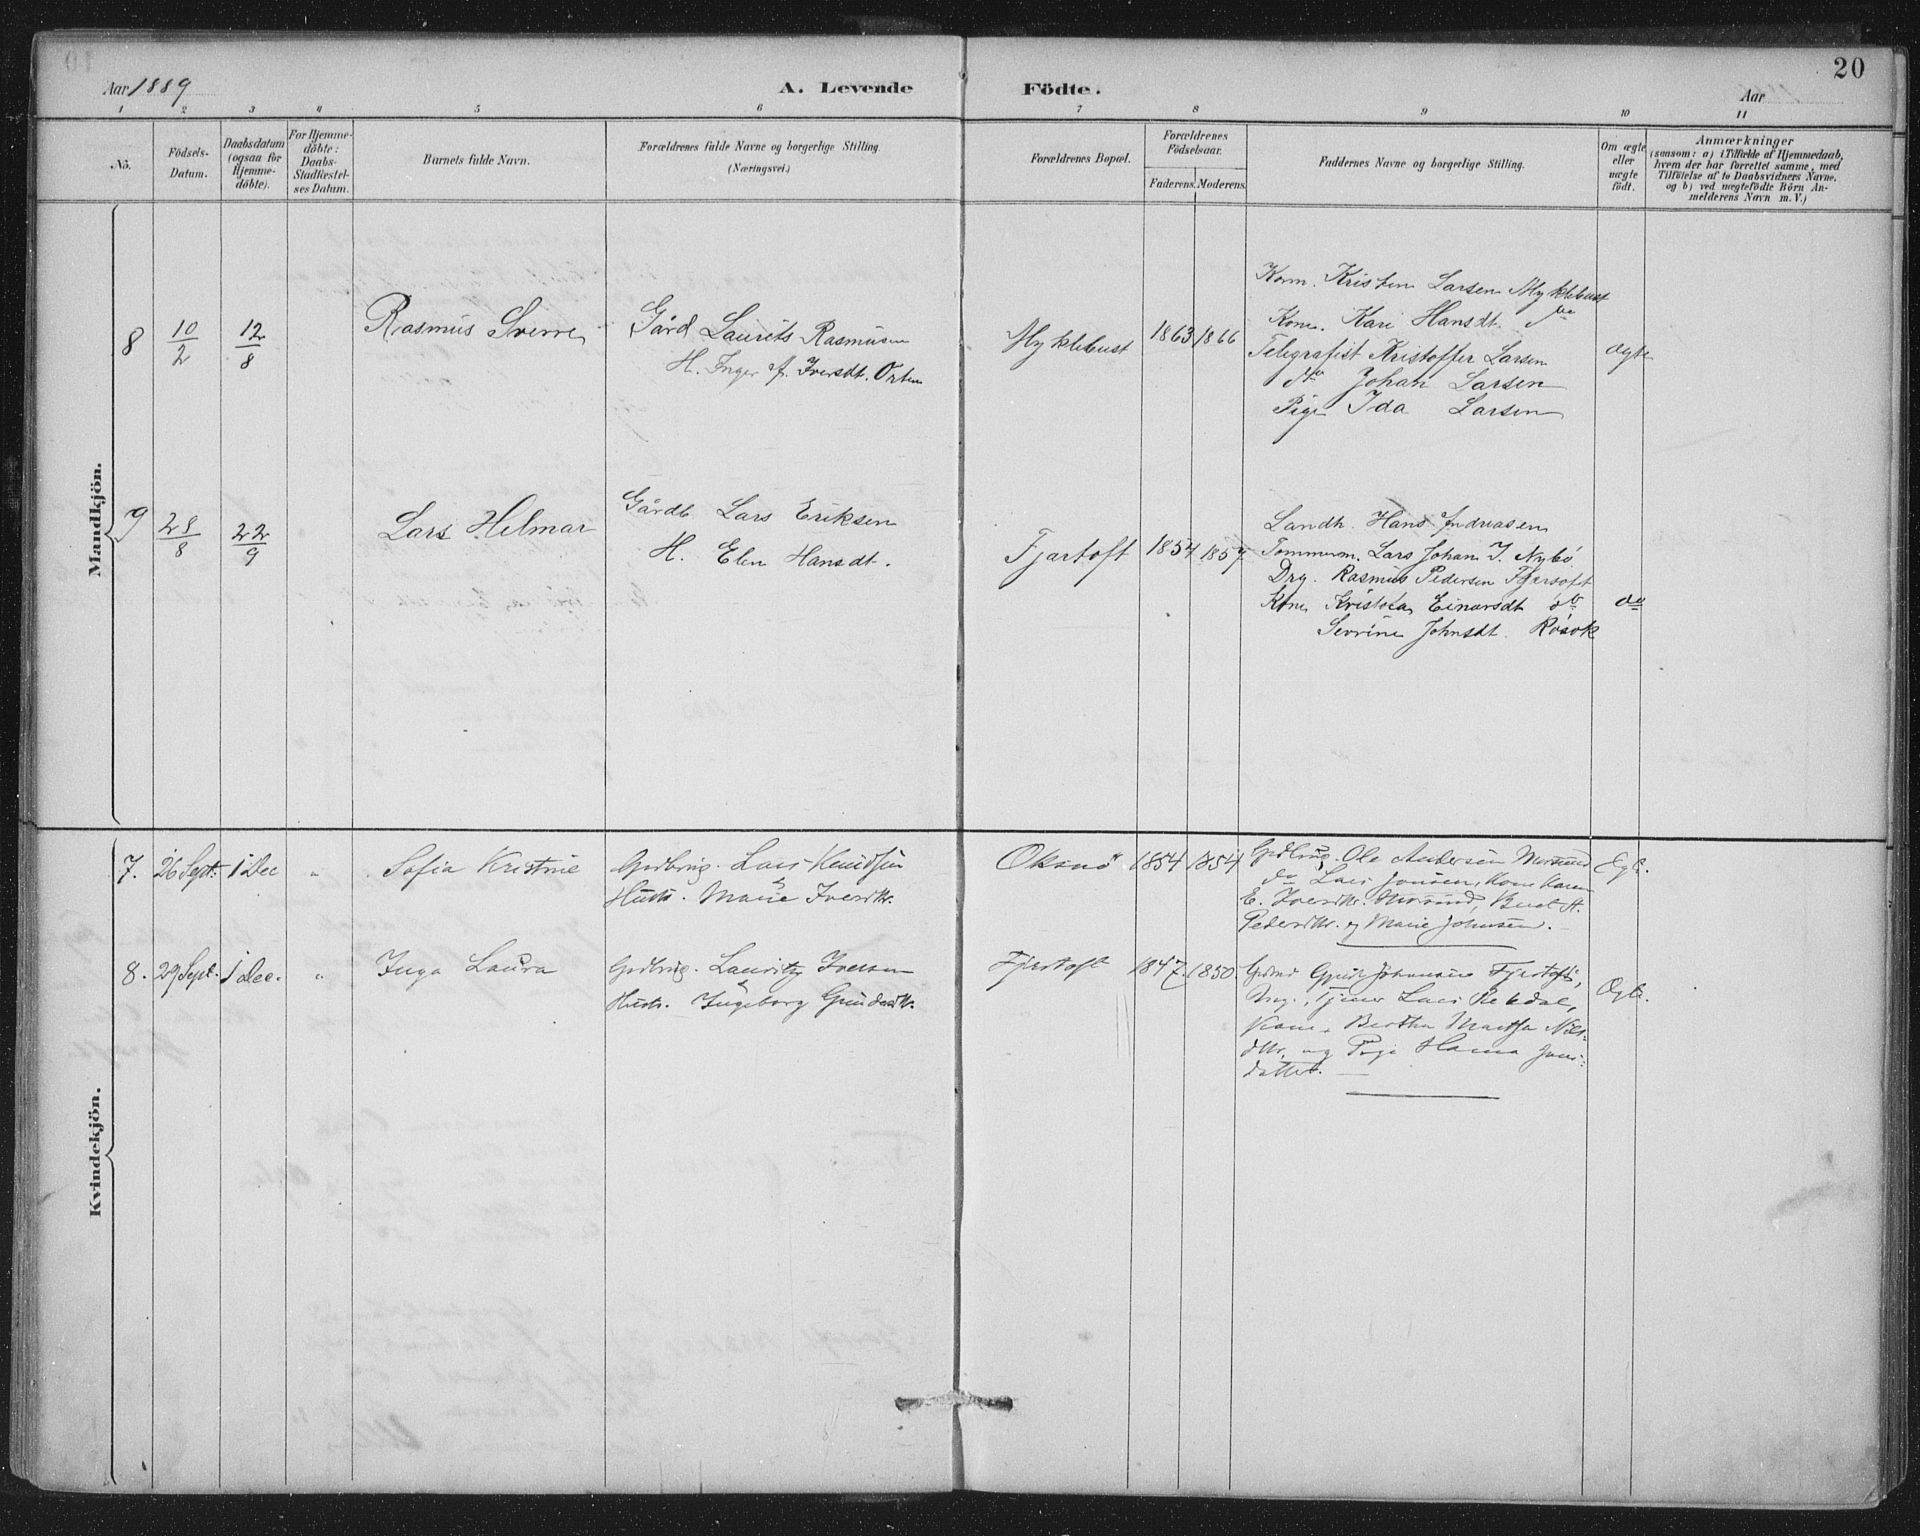 Aar 1889
A. Levende
Födte.
Aar
20
1 2 3 4 5 6 7 8 9 10 11
No.
Födsels-
Datum.
Daabsdatum
(ogsaa for
Hjemme-
döbte).
For Hjemme-
döbte:
Daabs-
Stadfæstel-
ses Datum.
Barnets fulde Navn.
Forældrenes fulde Navne og borgerlige Stilling.
(Næringsvei.)
Forældrenes Bopæl.
Forældrenes
Födselsaar.
Faderens. Moderens.
Faddernes Navne og borgerlige Stilling.
Om ægte
eller
uægte
födt.
Anmærkninger
(saasom: a) i Tilfælde af Hjemmedaab,
hvem der har forrettet samme, med
Tilföielse af to Daabsvidners Navne,
og b) ved uægtefödte Börn An-
melderens Navn m. V.)
Mandkjön.
8 10/2 12/8 Rasmus Sverre Gård Laurits Rasmusen
H. Inger Iversdt. Orten
Myklebust 1863 1866
Kristen Larsen Myklebust
Kone. Kari Hansdt. do
Telegrafist Kristoffer Larsen
do Johan Larsen
Pige Ida Larsen
ægte
9 28/8 22/9 Lars Helmar Gårdb Lars Eriksen
H. Elen Hansdt.
Fjærtoft 1854 1857
Landh. Hans Andreasen
Tommerm. Lars Johan I. Nybö
Drg. Rasmus Pedersen Fjærtoft
Kone Einarsdt do
Sevrine Johnsdt. Rösok
do
Kvindekjön.
7. 26 Sept. 1 Dec " Sofia Kristine Grdbrug. Lars Knudsen
Hustr. Marie Iversdtr.
Oksnö 1854 1854
Grdbrug. Ole Andersen
do Lars Jonsen, Kone Karen
E. Iversdtr. Beret A.
Pedersdtr. og Marie Johnsen.
Egte.
8. 29 Sept. 1 Dec. " Inga Laura Grdbrug. Lauritz Iversen
Hustr. Ingeborg Gundersdtr.
Fjærtoft 1847. 1850.
Johnsen Fjærtoft,
Ung. Tjener Lars Rekdal,
Kone. Bertha Martha Nils-
dtr, og Pige Hanna Jons-
datter.
Ægte.